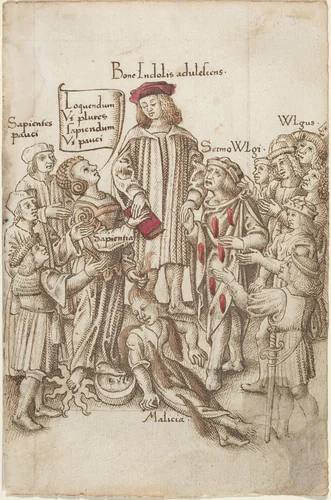 Bone Indolis adulescens.
Loquendum
Vt plures
sapiendum
Vt pauci
Sapientes
pauci
Sermo Wlgi.
Wlgus.
Sapientia
Malicia.